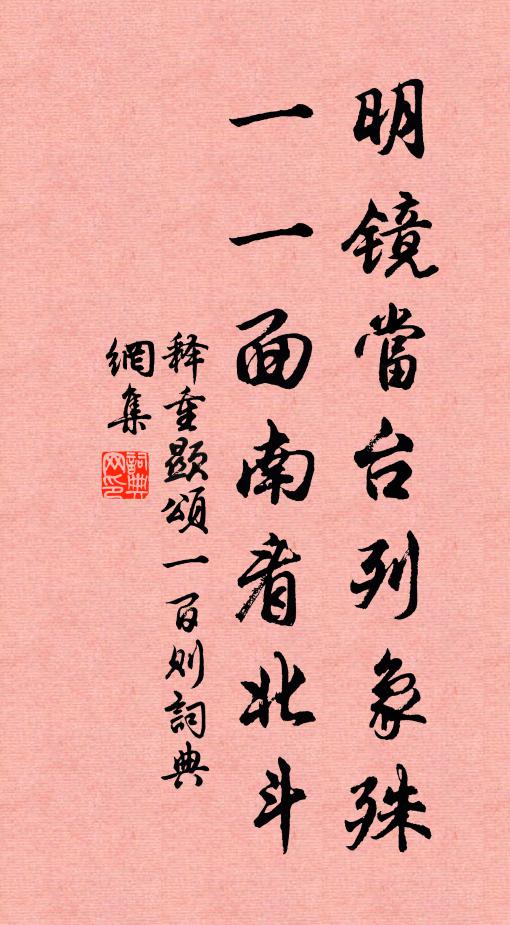 明镜當台列象殊
一一面南看北斗
释重顯頌一百则詞典
網集
詞典网印